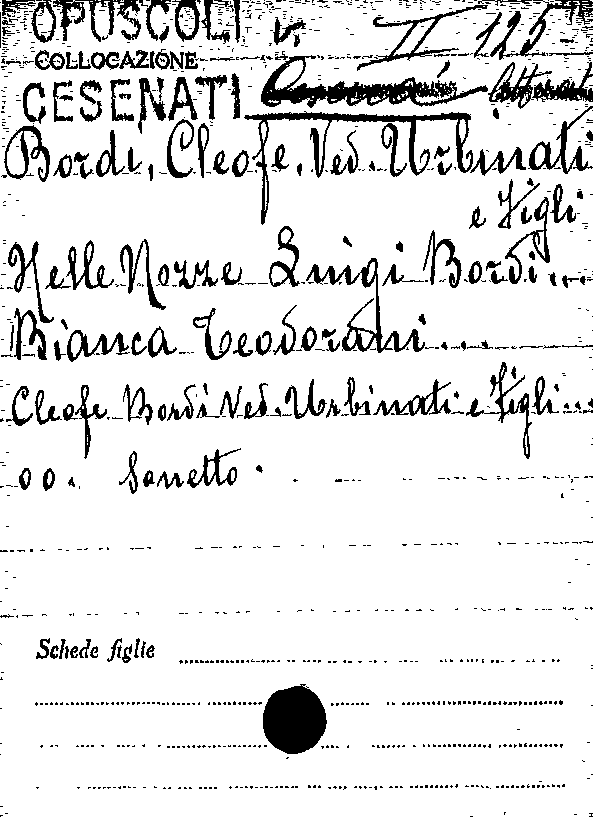 OPUSCOLI V. II 125
COLLOCAZIONE
CESENATI
Bordi, Cleofe, Ved. Urbinati
e Figli
Nelle Nozze Luigi Bordi...
Bianca Teodorani...
Cleofe Bordi Ved. Urbinati e Figli...
OO. Sonetto.
Schede figlie